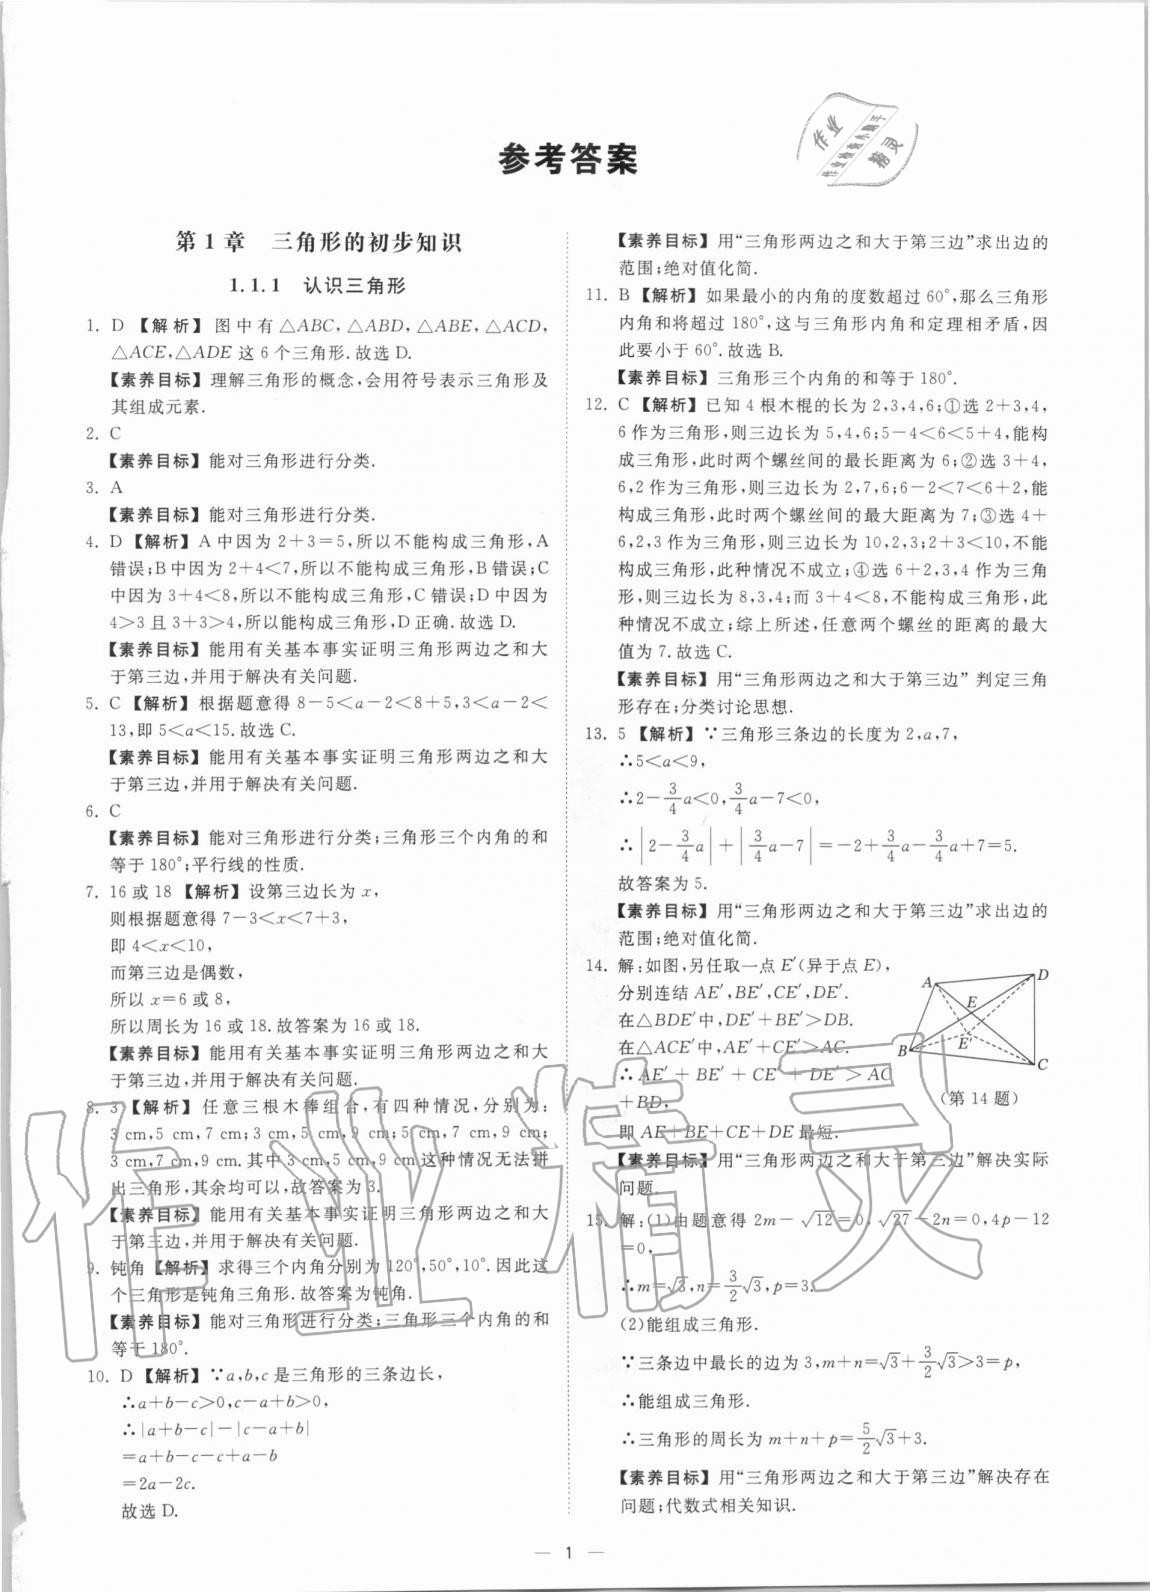 参考答案
作业
作业检查小助手
精灵
第1章 三角形的初步知识
1.1.1 认识三角形
1. D 【解析】图中有△ABC,△ABD,△ABE,△ACD,
△ACE,△ADE 这 6 个三角形.故选 D.
【素养目标】理解三角形的概念,会用符号表示三角形及
其组成元素.
2. C
【素养目标】能对三角形进行分类.
3. A
【素养目标】能对三角形进行分类.
4. D 【解析】A 中因为 2+3=5,所以不能构成三角形,A
错误;B 中因为 2+4<7,所以不能构成三角形,B 错误;C
中因为 3+4<8,所以不能构成三角形,C 错误;D 中因为
4>3 且 3+3>4,所以能构成三角形,D 正确.故选 D.
【素养目标】能用有关基本事实证明三角形两边之和大
于第三边,并用于解决有关问题.
5. C 【解析】根据题意得 8-5<a-2<8+5,3<a-2<
13,即 5<a<15.故选 C.
【素养目标】能用有关基本事实证明三角形两边之和大
于第三边,并用于解决有关问题.
6. C
【素养目标】能对三角形进行分类;三角形三个内角的和
等于 180°;平行线的性质.
7. 16 或 18 【解析】设第三边长为 x,
则根据题意得 7-3<x<7+3,
即 4<x<10,
而第三边是偶数,
所以 x=6 或 8,
所以周长为 16 或 18.故答案为 16 或 18.
【素养目标】能用有关基本事实证明三角形两边之和大
于第三边,并用于解决有关问题.
8. 3 【解析】任意三根木棒组合,有四种情况,分别为:
3 cm,5 cm,7 cm;3 cm,5 cm,9 cm;5 cm,7 cm,9 cm;
3 cm,7 cm,9 cm.其中 3 cm,5 cm,9 cm 这种情况无法拼
出三角形,其余均可以,故答案为 3.
【素养目标】能用有关基本事实证明三角形两边之和大
于第三边,并用于解决有关问题.
9. 钝角 【解析】求得三个内角分别为 120°,50°,10°.因此这
个三角形是钝角三角形.故答案为钝角.
【素养目标】能对三角形进行分类;三角形三个内角的和
等于 180°.
10. D 【解析】∵a,b,c 是三角形的三条边长,
∴a+b-c>0,c-a+b>0,
∴|a+b-c|-|c-a+b|
=a+b-c-c+a-b
=2a-2c.
故选 D.
【素养目标】用“三角形两边之和大于第三边”求出边的
范围;绝对值化简.
11. B 【解析】如果最小的内角的度数超过 60°,那么三角形
内角和将超过 180°,这与三角形内角和定理相矛盾,因
此要小于 60°.故选 B.
【素养目标】三角形三个内角的和等于 180°.
12. C 【解析】已知 4 根木棍的长为 2,3,4,6;①选 2+3,4,
6 作为三角形,则三边长为 5,4,6;5-4<6<5+4,能构
成三角形,此时两个螺丝间的最长距离为 6;②选 3+4,
6,2 作为三角形,则三边长为 2,7,6;6-2<7<6+2,能
构成三角形,此时两个螺丝间的最大距离为 7;③选 4+
6,2,3 作为三角形,则三边长为 10,2,3;2+3<10,不能
构成三角形,此种情况不成立;④选 6+2,3,4 作为三角
形,则三边长为 8,3,4;而 3+4<8,不能构成三角形,此
种情况不成立;综上所述,任意两个螺丝的距离的最大
值为 7.故选 C.
【素养目标】用“三角形两边之和大于第三边” 判定三角
形存在;分类讨论思想.
13. 5 【解析】∵三角形三条边的长度为 2,a,7,
∴5<a<9,
∴2-3/4a<0,3/4a-7<0,
∴|2-3/4a|+|3/4a-7|=-2+3/4a-3/4a+7=5.
故答案为 5.
【素养目标】用“三角形两边之和大于第三边”求出边的
范围;绝对值化简.
14. 解:如图,另任取一点 E′(异于点 E),
分别连结 AE′,BE′,CE′,DE′.
在△BDE′中,DE′+BE′>DB.
在△ACE′中,AE′+CE′>AC.
∴ AE′ + BE′ + CE′ + DE′ > AC
+BD,
即 AE+BE+CE+DE 最短.
A
D
E
E′
B
C
(第 14 题)
【素养目标】用“三角形两边之和大于第三边”解决实际
问题.
15. 解:(1)由题意得 2m-√12=0,√27-2n=0,4p-12
=0,
∴m=√3,n=3/2√3,p=3.
(2)能组成三角形.
∵三条边中最长的边为 3,m+n=√3+3/2√3>3=p,
∴能组成三角形.
∴三角形的周长为 m+n+p=5/2√3+3.
【素养目标】用“三角形两边之和大于第三边”解决存在
问题;代数式相关知识.
作业精灵
— 1 —